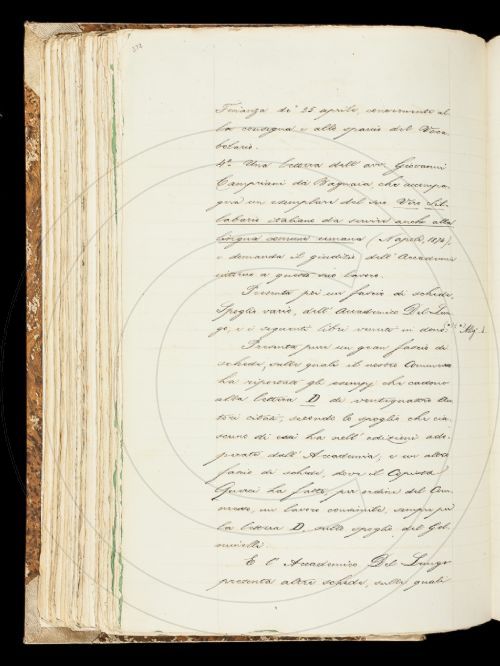 272
Finanza di 25 aprile, concernente al-
la consegna e allo spazio del Voca-
bolario.
4.° Una lettera dell' avv. Giovanni
Campriani da Bagnaia, che accompa-
gna un esemplare del suo Vero Sil-
labario italiano da servire anche alla
lingua comune umana (Napoli, 1874),
e domanda il giudizio dell' Accademia
intorno a questo suo lavoro.
Presenta poi un fascio di schede,
Spoglio vario, dell' Accademico Del Lun-
go, e i seguenti libri venuti in dono.
Presenta pure un gran fascio di
schede, sulle quali il nostro Commesso
ha riportato gli esempj che cadono
alla lettera D di ventiquattro Au-
tori citati, secondo lo spoglio che cia-
scuno di essi ha nell' edizioni ado-
prate dall' Accademia, e un altro
fascio di schede, dove il Copista
ha fatto, per ordine del Com-
messo, un lavoro consimile, sempre per
la lettera D, sullo spoglio del
E l' Accademico Del Lungo
presenta altre schede, sulle quali